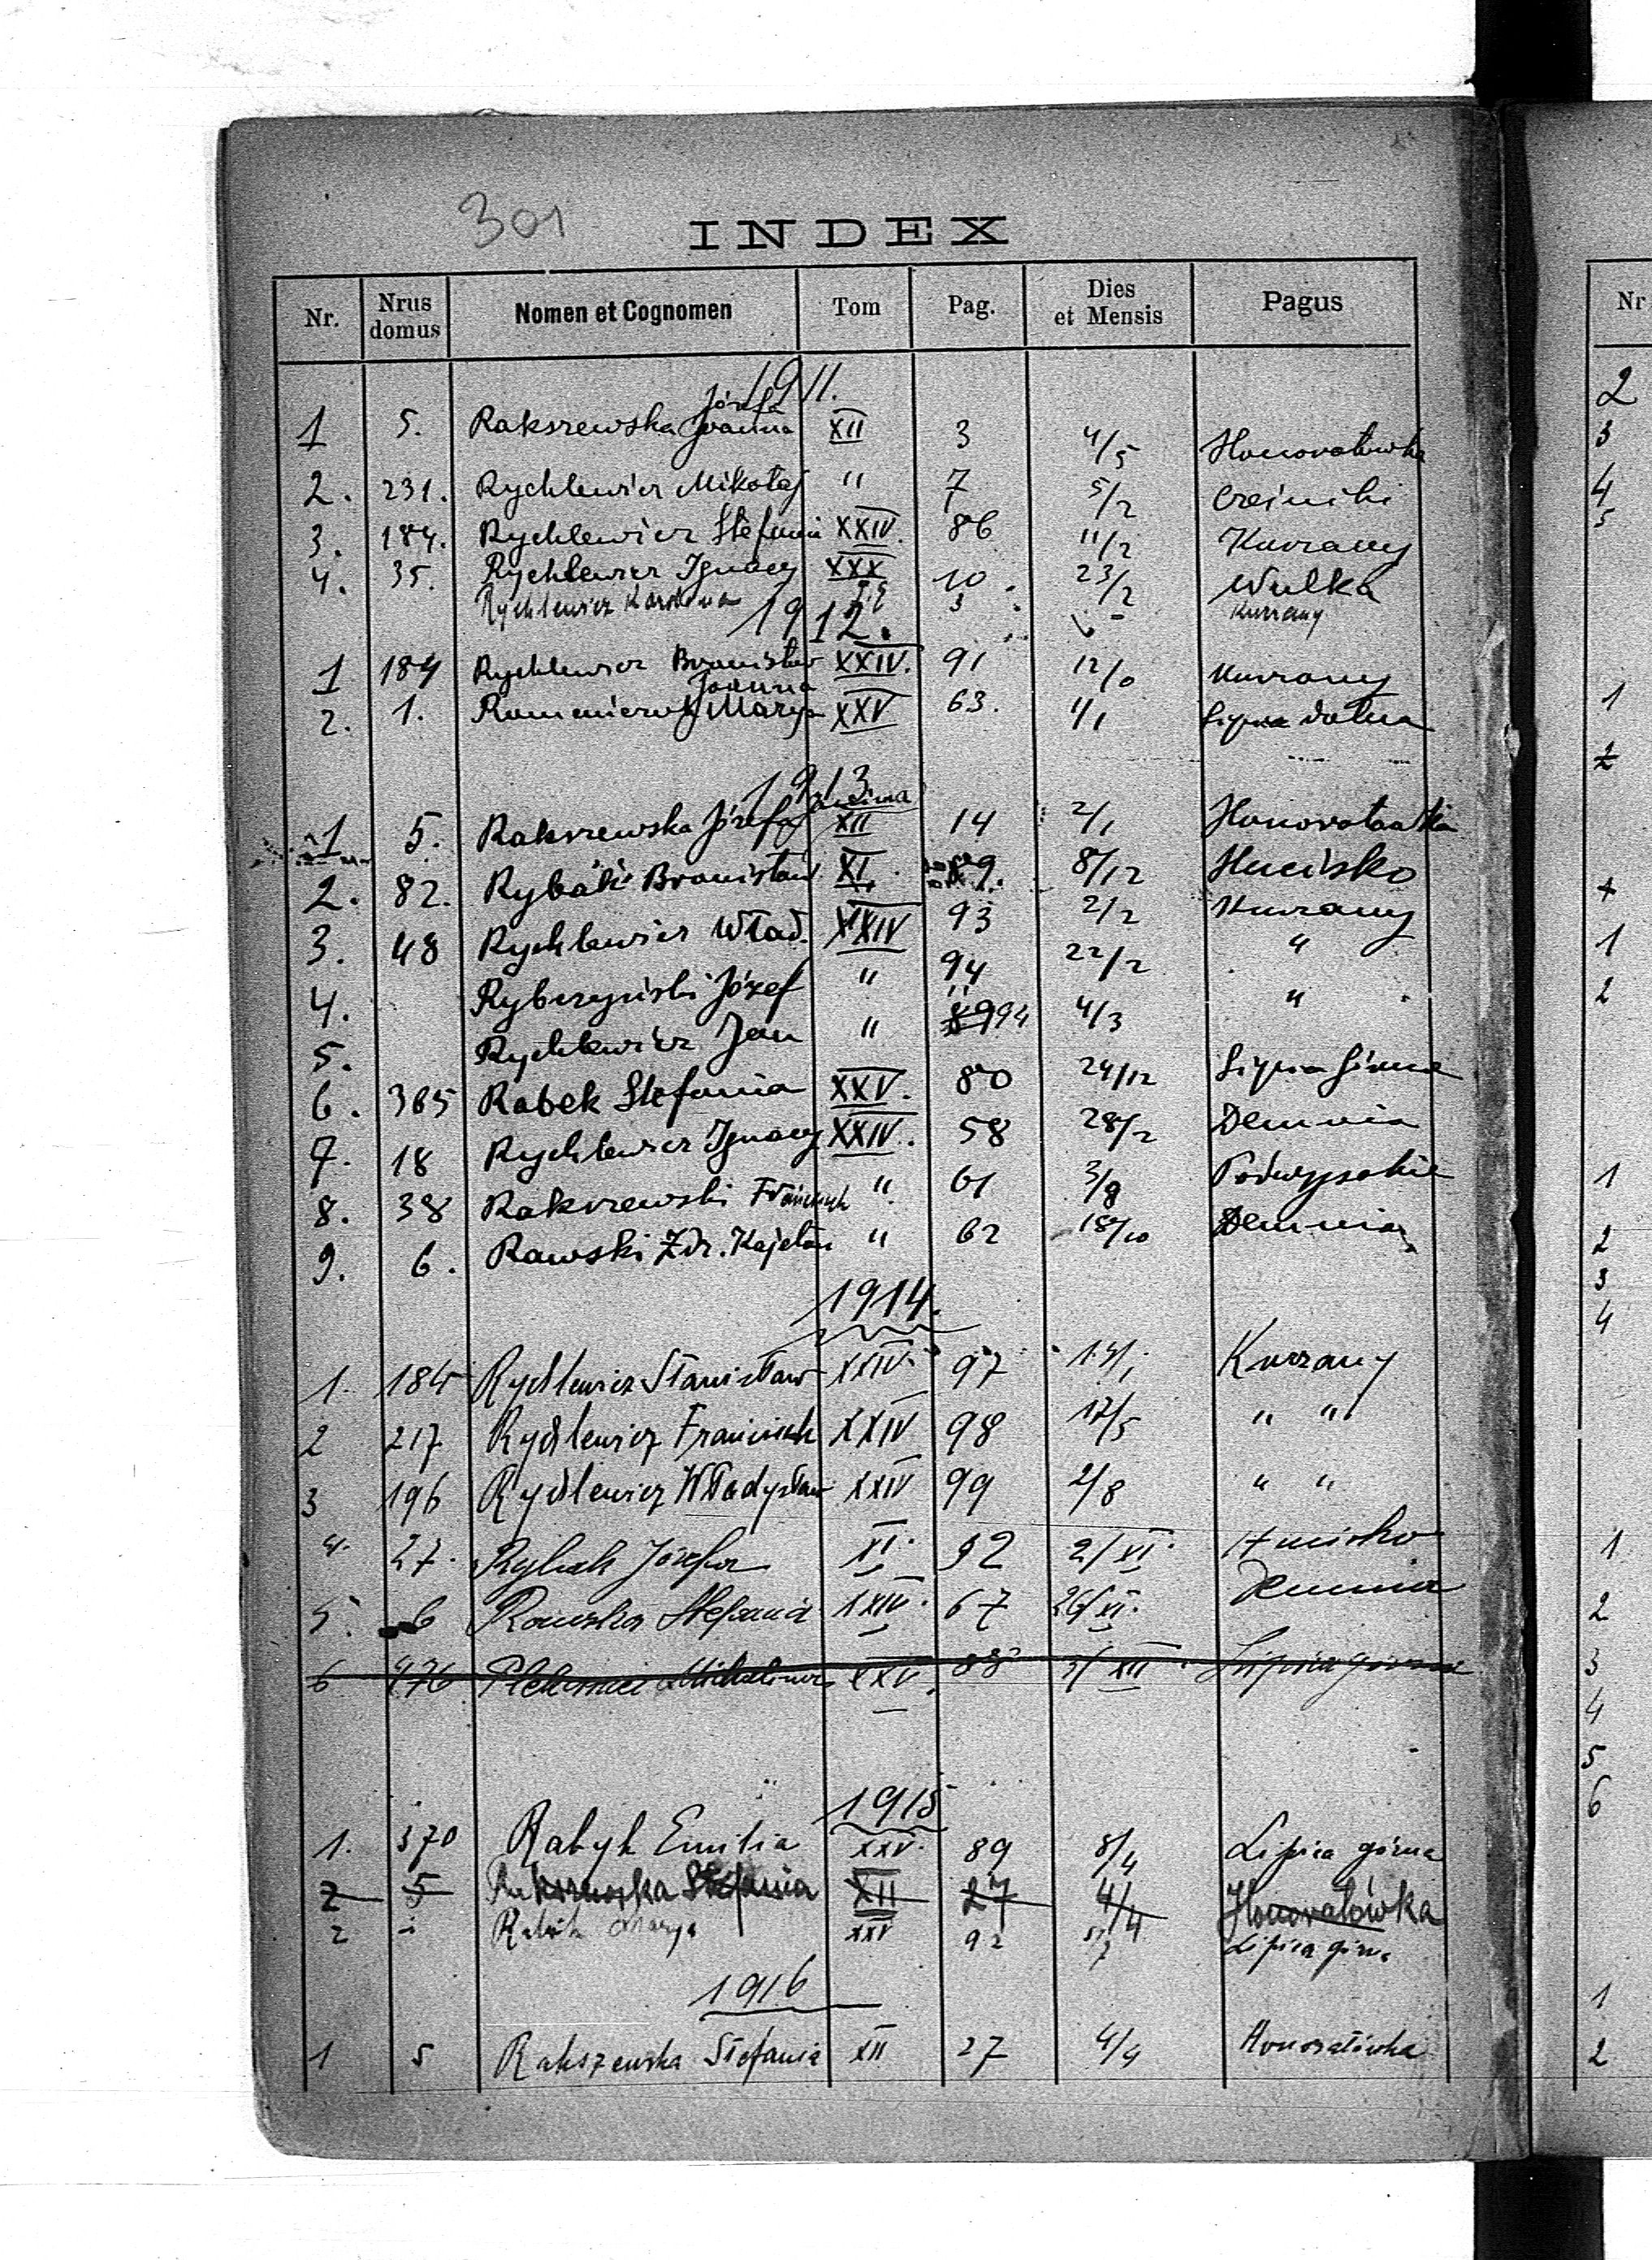 301
INDEX
Nr. Nrus domus Nomen et Cognomen Tom Pag. Dies et Mensis Pagus
1911.
Józefa
1 5. Rakszewska Joanna XII 3 4/5 Honoratówka
2. 231. Rychlewicz Mikołaj " 7 5/2
3. 184. Rychlewicz Stefania XXIV. 86 11/2 Kurzany
4. 35. Rychlewicz Ignacy XXX 10. 23/2 Wulka
Rychlewicz Karolina 3 Kurzany
1912.
1 184 Rychlewicz Bronisław XXIV. 91 Kurzany
Joanna
2. 1. Marya XXV 63. 1/1 Lipica dolna
1913
1 5. Rakszewska Józefa XII 14 2/1
2. 82. Rybak Bronisław XI. 8/12 Hucisko
3. 48 Rychlewicz Wład. XXIV 93 2/2 Kurzany
4. Rybczyński Józef " 94 22/2 "
5. Rychlewicz Jan " 89 94 4/3 "
6. 365 Rabek Stefania XXV. 80 24/12 Lipica Górna
7. 18 Rychlewicz Ignacy XXIV. 58 28/2 Demnia
8. 38 Rakszewski Franciszek " 61 3/8 Podwysokie
9. 6. Rawski Zdz. Kajetan " 62 18/10 Demnia
1914.
1. 184 Rychlewicz Stanisław XXIV. 97 13/1. Kurzany
2 217 Rychlewicz Franciszek XXIV 98 12/5 " "
3 196 Rychlewicz Władysław XXIV 99 2/8 " "
4. 27. Rybak Józefa XI. 92 2/XI. Hucisko
5. 6 Rawska Stefania XXIV. 67 26/XI. Demnia
6 476 Michalina XXV. 88 3/XII. Lipica górna
1915
1. 370 Rabyk Emilia XXV. 89 8/4 Lipica górna
2 5 Rakszewska Stefania XII 27 4/4 Honoratówka
2 Marya XXV 92 Lipica górna
1916
1 5 Rakszewska Stefania XII 27 4/4 Honoratówka
Nr
2
3
4
5
1
2
1
2
1
2
3
4
1
2
3
4
5
6
1
2